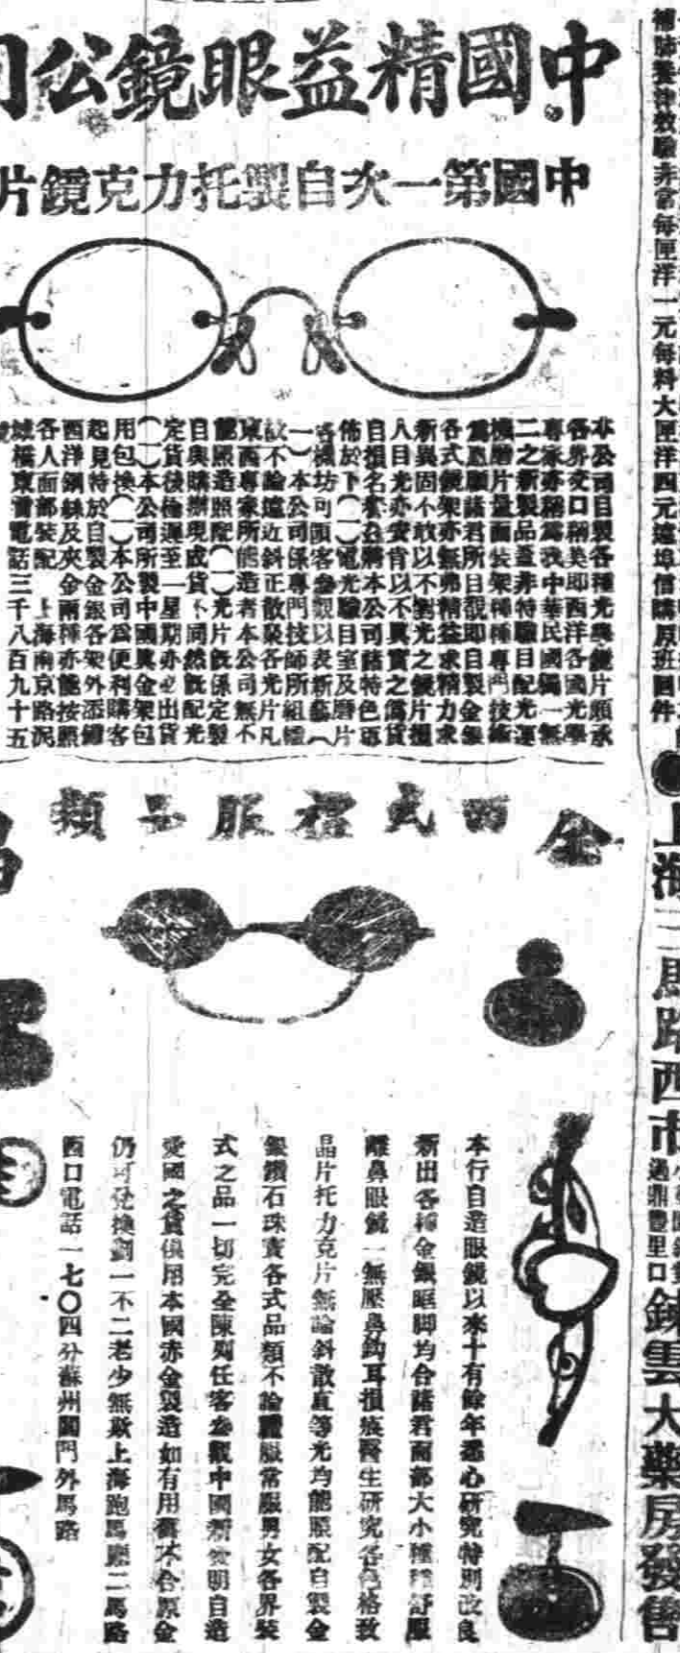 中國精益眼鏡公司
中國第一次自製托力克鏡片
本公司自製各種光學鏡片頗承
各界交口稱美即西洋各國光學
專家亦稱爲我中華民國獨一無
二之新製品蓋非特驗目配光運
機磨片量面裝架種種專門技
諸君所目覩即自製金銀
各式鏡架亦無弗精益求精力求
新異固不敢以不對光之鏡片損
人目光亦安肯以不真實之僞貨
自損名譽茲將本公司諸特色再
佈於下(一)電光驗目室及磨片
各機坊可頋客參觀以表新藝(
一)本公司係專門技師所組織
故不論遠近斜正散聚各光片凡
東西專家所能造者本公司無不
能照造照配(一)光片既係定製
自與購辦現成貨不同然既配光
定貨後極遲至一星期亦必出貨
(一)本公司所製中國真金架包
用包換(一)本公司爲便利購客
起見特於自製金銀各架外添辦
西洋鋼絲及夾金兩種亦能按照
各人面部裝配 上海南京路泥
城橋東首電話三千八百九十五
全 式 服 品 類
本行自造眼鏡以來十有餘年悉心研究特別改良
新出各種金銀眶脚均合諸君面部大小種種舒服
離鼻眼鏡一無壓鼻鈎耳損痕醫生研究各色格致
晶片托力克片無論斜散直等光均能照配自製金
銀鑽石珠寶各式品類不論禮服常服男女各界裝
式之品一切完全陳列任客參觀中國新發明自造
愛國之貨俱用本國赤金製造如有用舊不合原金
仍可兌換劃一不二老少無欺上海跑馬廳二馬路
西口電話一七〇四分蘇州閶門外馬路
補肺養 效驗非常每匣洋一元每料大匣洋四元遠埠信購原班回件
上海三馬路西市
過鼎豐里口
錬雲大藥房發售